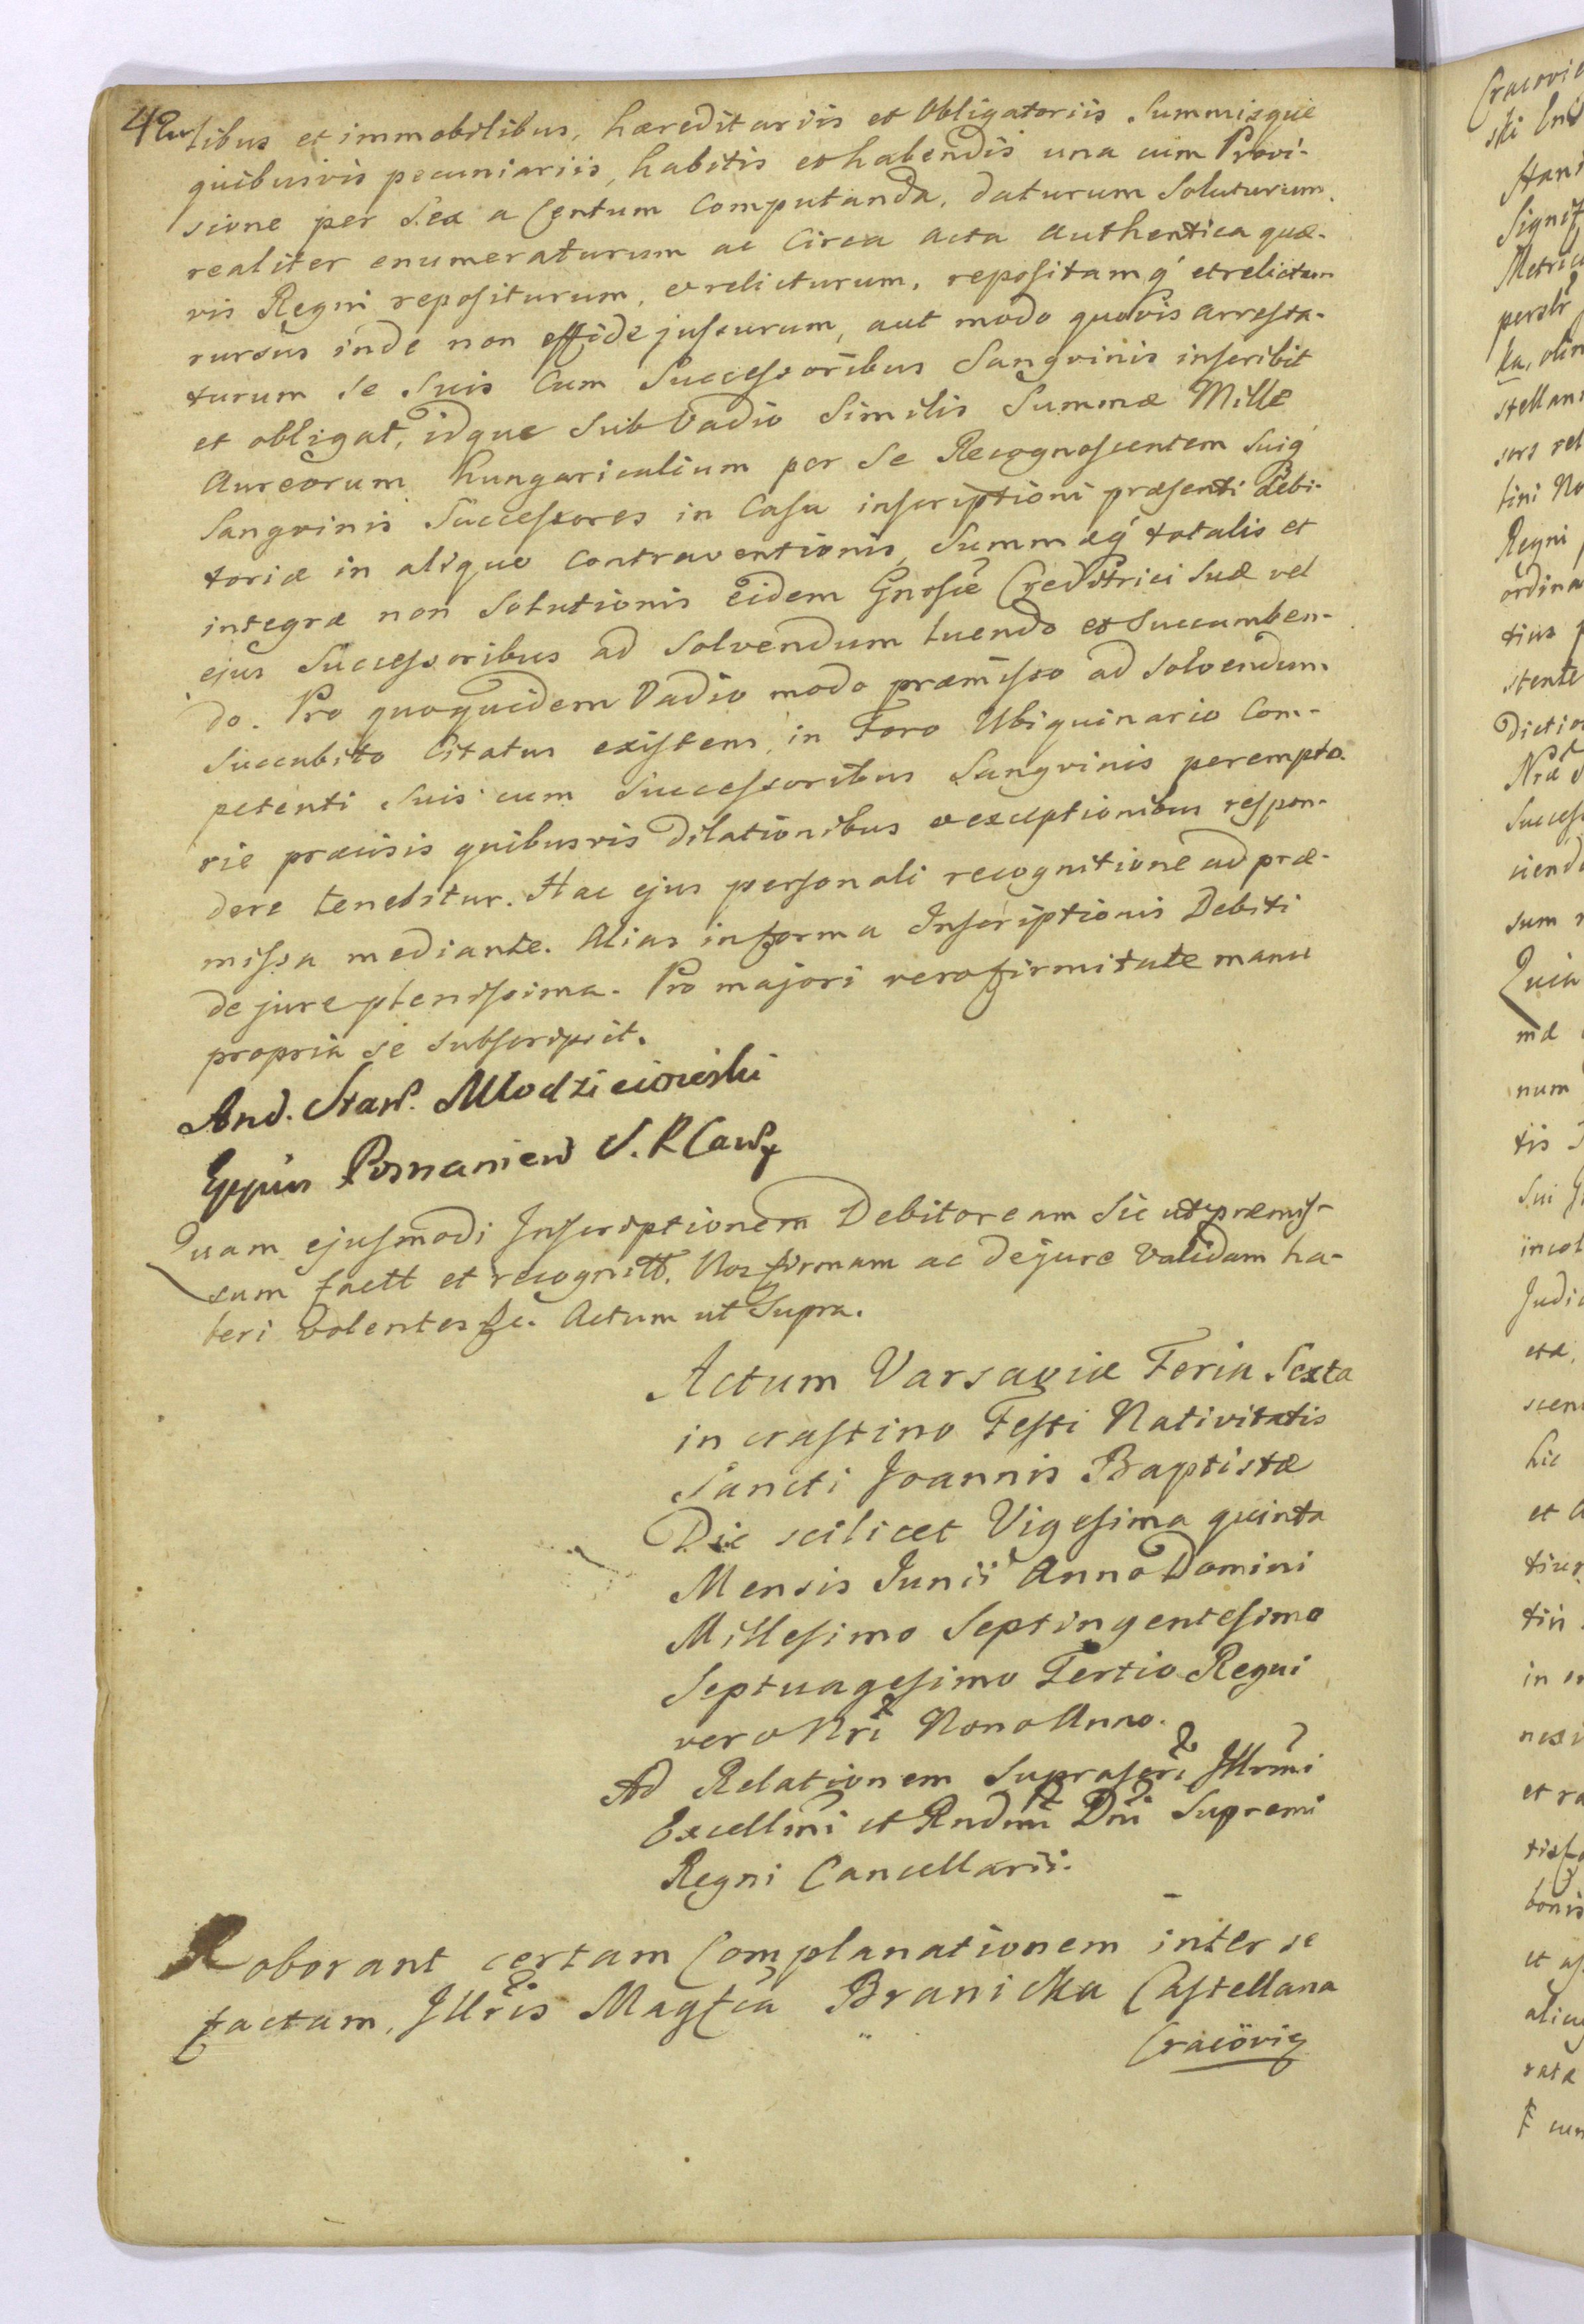 42
libus et immobilibus, hæreditariis et Obligatoriis Summisque
quibusvis pecuniariis, habitis et habendis una cum Provi-
sione per Sex a Centum Computanda, daturum Soluturum.
realiter enumeraturum ac Circa acta authentica quæ-
vis Regni repositurum, et relicturum, repositamq́ et relictam
rursus inde non effidejussurum, aut modo quovis arresta-
turum se suis Cum Successoribus Sangvinis inscribit
et obligat, idque Sub Vadio Similis Summæ Mille
Aureorum Hungaricalium per Se Recognoscentem Suiq́
Sangvinis Successores in Casu inscriptioni præsenti debi-
toriæ in aliquo Contraventionis, Summæq́ totalis et
integræ non Solutionis eidem Gnrosæ Creditrici Suæ vel
ejus Successoribus ad Solvendum luendo et Succumben-
do. Pro quoquidem Vadio modo præmisso ad Solvendum
Succubito Citatus existens, in Foro Ubiquinario Com-
petenti Suis cum Successoribus Sangvinis perempto-
rie præcisis quibusvis Dilationibus et exceptionibus respon-
dere tenebitur. Hac ejus personali recognitione ad præ-
missa mediante. Alias in forma Inscriptionis Debiti
de jure plenissima. Pro majori vero firmitate manu
propria se subscripsit.
And. Stan. Młodzieiowski
Eppus Posnanien S. R Canc
Quam ejusmodi Inscriptionem Debitoream Sic ut præmis-
sum factt et recognitt. Nos firmam ac de jure Validam ha-
beri Volentes &c. Actum ut Supra.
Actum Varsaviæ Feria Sexta
in crastino Festi Nativitatis
Sancti Joannis Baptistæ
Die scilicet Vigesima quinta
Mensis Junii Anno Domini
Millesimo Septingentesimo
Septuagesimo Tertio Regni
vero Nri Nono Anno.
Ad Relationem Suprascri Illrmi
Excellmi et Rndmi Dni Supremi
Regni Cancellarii.
Roborant certam Complanationem inter se
factam, Illris Magfca Branicka Castellana
Cracoviæ